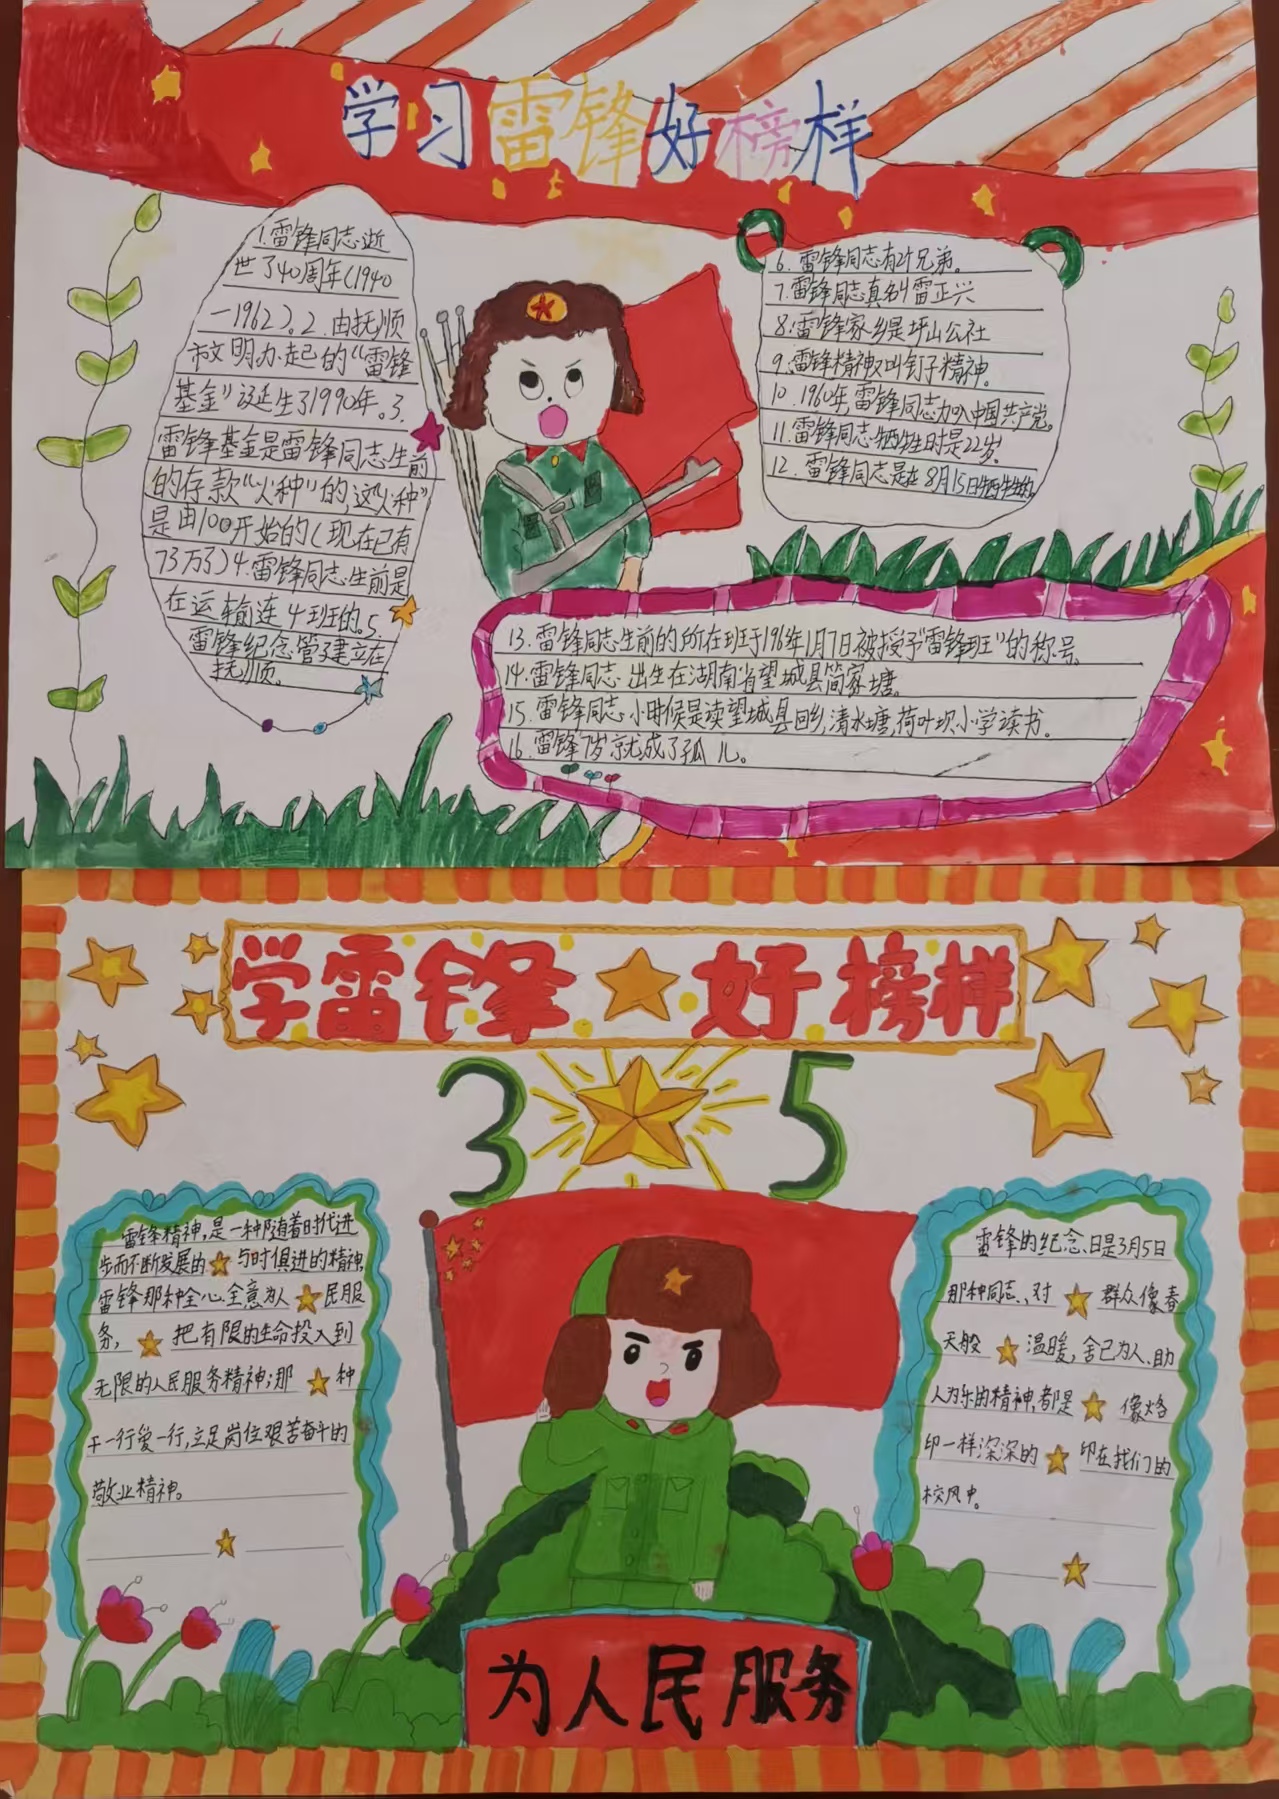 学习雷锋好榜样
1.雷锋同志逝
世了40周年(1940
—1962)。2.由抚顺
市文明办起的“雷锋
基金”诞生于1990年。3.
雷锋基金是雷锋同志生前
的存款“火种”的,这“火种”
是由100开始的(现在已有
73万3)4.雷锋同志生前是
在运输连4班的。5.
雷锋纪念管建立在
抚顺。
6.雷锋同志有2个兄弟。
7.雷锋同志真名叫雷正兴
8.雷锋家乡是坪山公社
9.雷锋精神又叫钉子精神。
10.1960年,雷锋同志加入中国共产党。
11.雷锋同志牺牲时是22岁。
12.雷锋同志是在8月15日牺牲的。
13.雷锋同志生前的所在班于1963年1月7日被授予“雷锋班”的称号。
14.雷锋同志出生在湖南省望城县简家塘。
15.雷锋同志小时候是读望城县回乡,清水塘,荷叶坝小学读书。
16.雷锋7岁就成了孤儿。
学雷锋好榜样
3 5
雷锋精神,是一种随着时代进
步而不断发展的与时俱进的精神.
雷锋那种全心全意为人民服
务,把有限的生命投入到
无限的人民服务精神;那种
干一行爱一行,立足岗位艰苦奋斗的
敬业精神。
雷锋的纪念日是3月5日
那种同志、对群众像春
天般温暖,舍己为人、助
人为乐的精神,都是像烙
印一样深深的印在我们的
校风中。
为人民服务